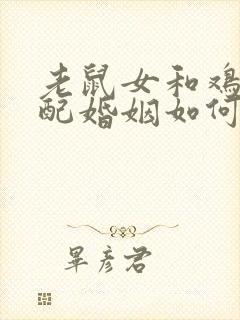 老鼠女和鸡
配婚姻如何
毕彦君